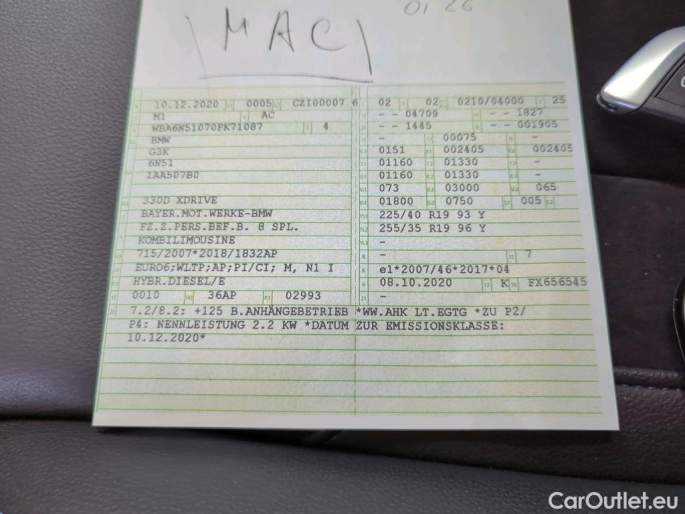 01.26
MAC
10.12.2020 0005 CZI00007 6 02 02 0210/04000 25
M1 AC - - 04709 - - 1827
WBA6N51070FK71087 4 - - 1445 - - 001905
BMW - 00075 -
G3K 0151 002405 002405
6N51 01160 01330 -
1AA507B0 01160 01330 -
073 03000 065
330D XDRIVE 01800 0750 005
BAYER.MOT.WERKE-BMW 225/40 R19 93 Y
FZ.Z.PERS.BEF.B. 8 SPL. 255/35 R19 96 Y
KOMBILIMOUSINE -
715/2007*2018/1832AP - 7
EURO6;WLTP;AP;PI/CI; M, N1 I e1*2007/46*2017*04
HYBR.DIESEL/E 08.10.2020 K FX656545
0010 36AP 02993 -
7.2/8.2: +125 B.ANHÄNGEBETRIEB *WW.AHK LT.EGTG *ZU P2/
P4: NENNLEISTUNG 2.2 KW *DATUM ZUR EMISSIONSKLASSE:
10.12.2020*
CarOutlet.eu